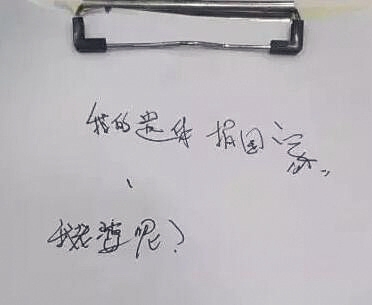 我的遗体捐国家
我老婆呢？